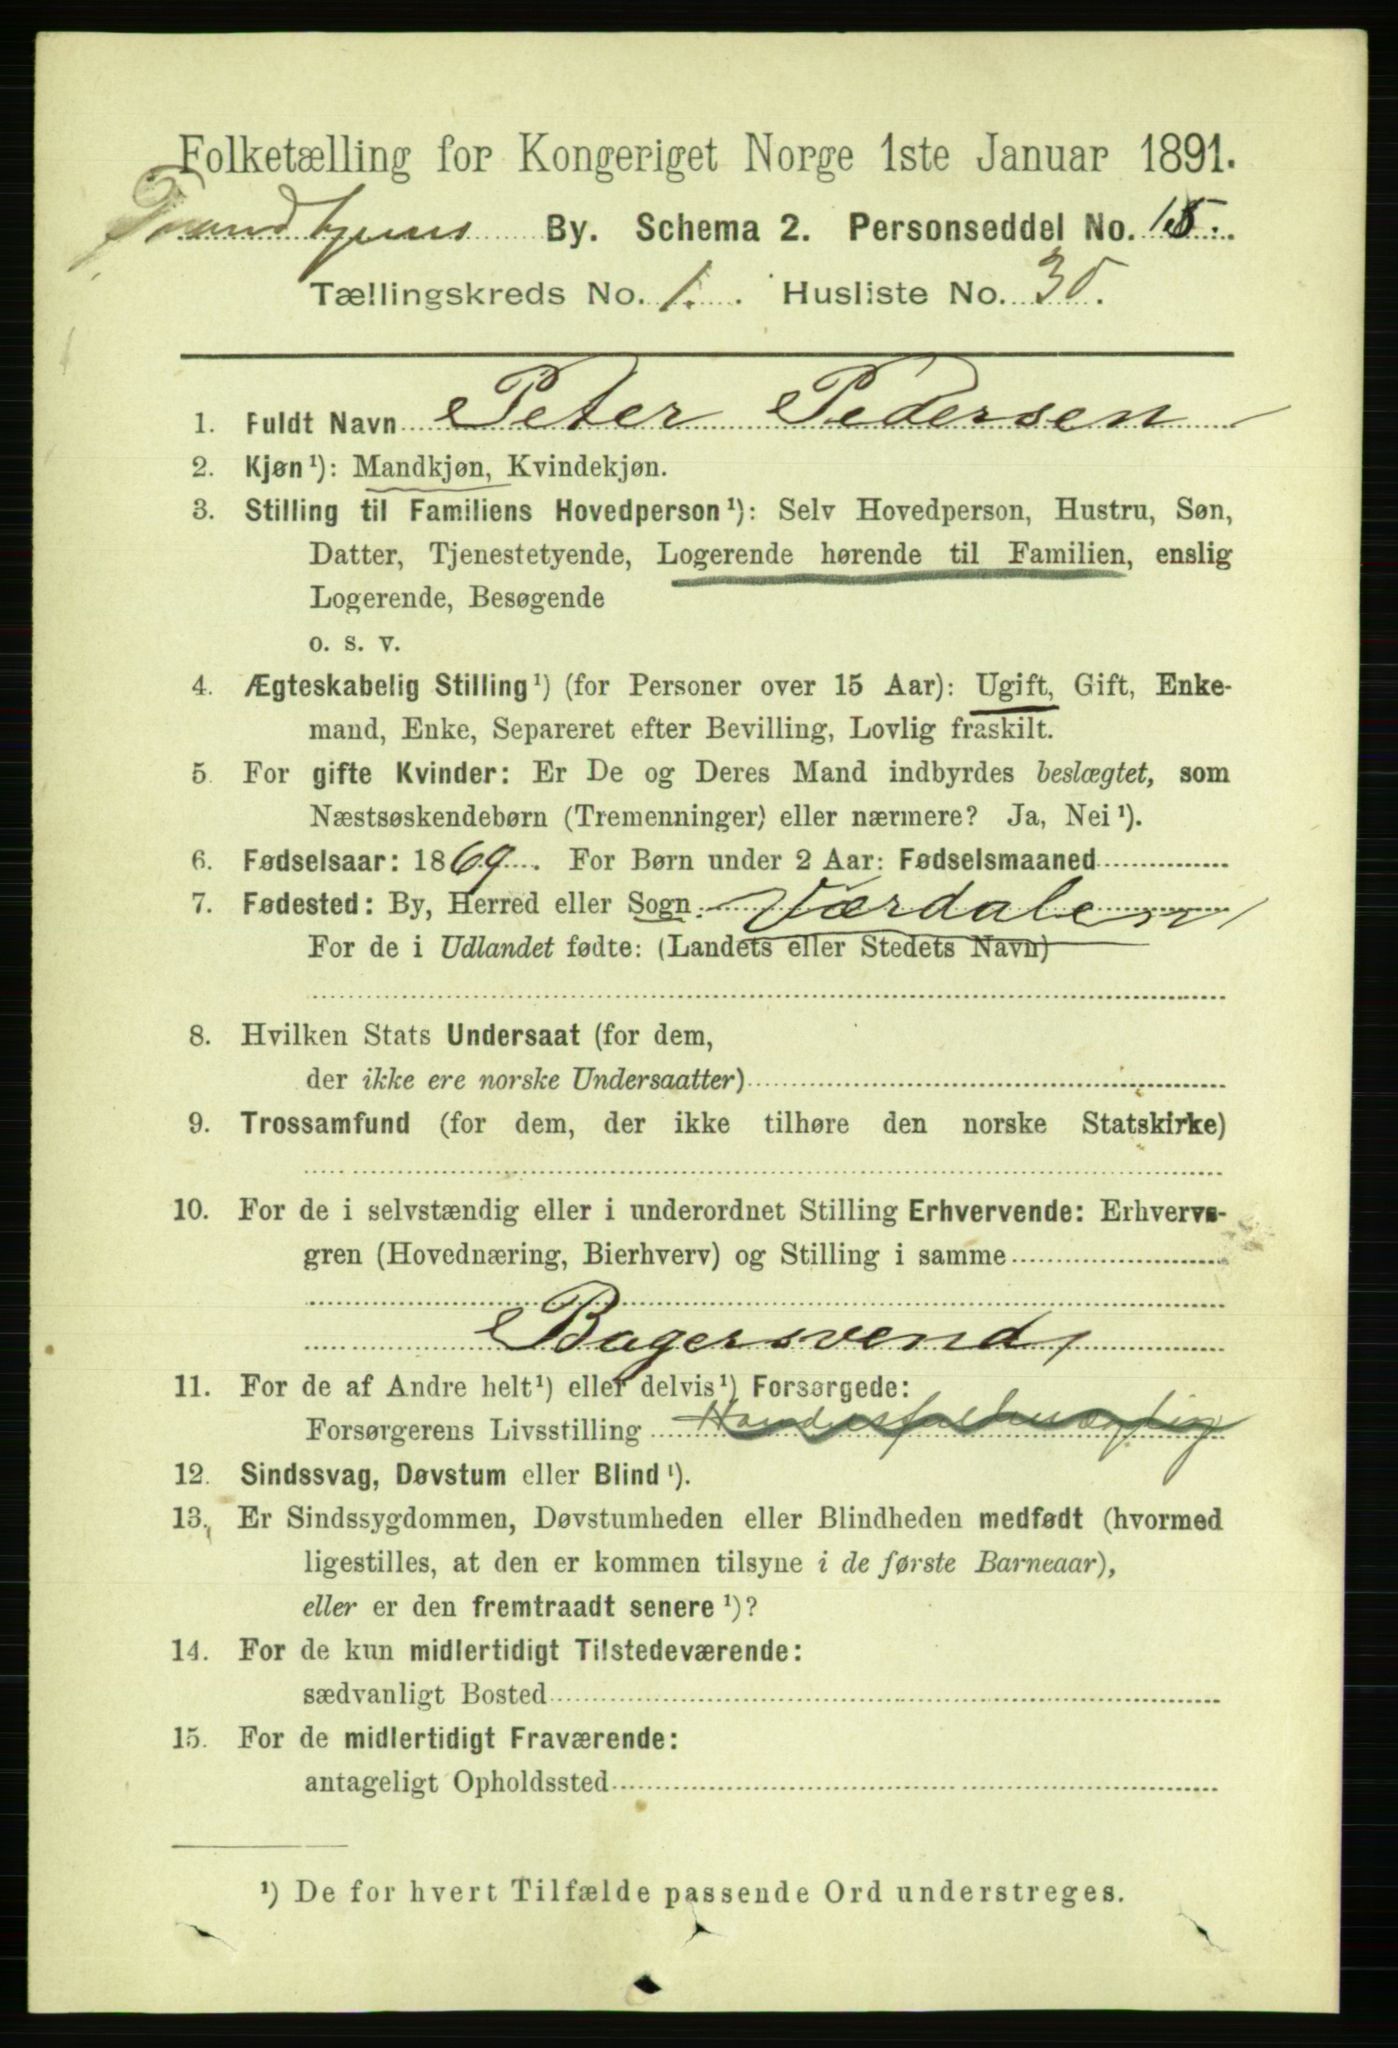 Folketælling for Kongeriget Norge 1ste Januar 1891.
Trondhjems By. Schema 2. Personseddel No. 15.
Tællingskreds No. 1. Husliste No. 30.
1. Fuldt Navn Peter Pedersen
2. Kjøn¹): Mandkjøn, Kvindekjøn.
3. Stilling til Familiens Hovedperson¹): Selv Hovedperson, Hustru, Søn,
Datter, Tjenestetyende, Logerende hørende til Familien, enslig
Logerende, Besøgende
o. s. v.
4. Ægteskabelig Stilling¹) (for Personer over 15 Aar): Ugift, Gift, Enke-
mand, Enke, Separeret efter Bevilling, Lovlig fraskilt.
5. For gifte Kvinder: Er De og Deres Mand indbyrdes beslægtet, som
Næstsøskendebørn (Tremenninger) eller nærmere? Ja, Nei¹).
6. Fødselsaar: 1869. For Børn under 2 Aar: Fødselsmaaned
7. Fødested: By, Herred eller Sogn Værdalen
For de i Udlandet fødte: (Landets eller Stedets Navn)
8. Hvilken Stats Undersaat (for dem,
der ikke ere norske Undersaatter)
9. Trossamfund (for dem, der ikke tilhøre den norske Statskirke)
10. For de i selvstændig eller i underordnet Stilling Erhvervende: Erhvervs-
gren (Hovednæring, Bierhverv) og Stilling i samme
Bagersvend,
11. For de af Andre helt¹) eller delvis¹) Forsørgede:
Forsørgerens Livsstilling
12. Sindssvag, Døvstum eller Blind¹).
13. Er Sindssygdommen, Døvstumheden eller Blindheden medfødt (hvormed
ligestilles, at den er kommen tilsyne i de første Barneaar),
eller er den fremtraadt senere¹)?
14. For de kun midlertidigt Tilstedeværende:
sædvanligt Bosted
15. For de midlertidigt Fraværende:
antageligt Opholdssted
¹) De for hvert Tilfælde passende Ord understreges.